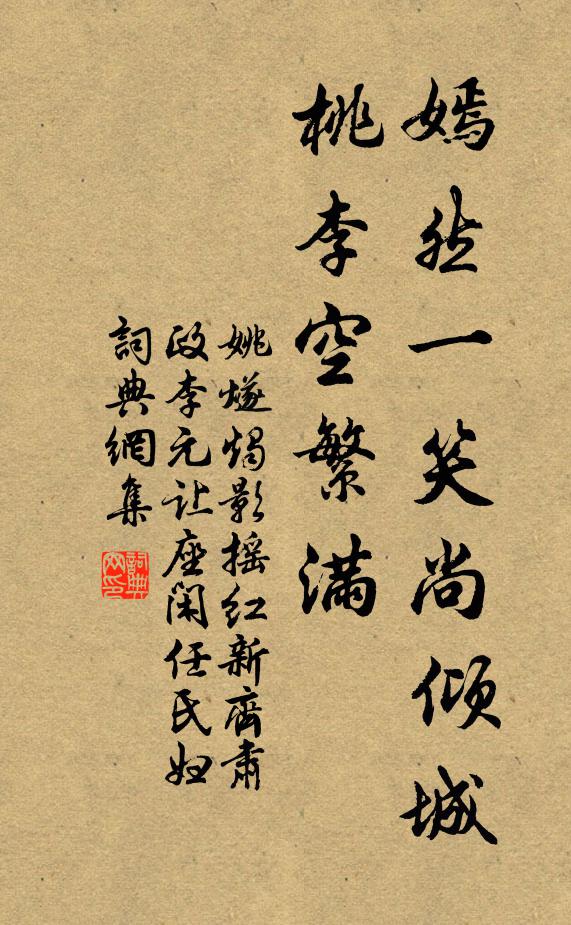 嫣然一笑尚倾城
桃李空繁满
姚燧烛影摇红新齐肃
政李元让座闲任氏妇
词典网集
词典网印